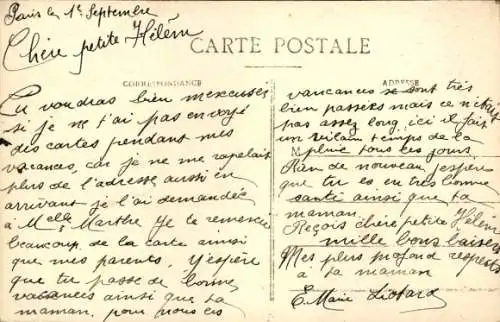 Paris le 1r Septembre
Chère petite Hélèn
CARTE POSTALE
CORRESPONDANCE
ADRESSE
Tu voudras bien mexcuser
si je ne t'ai pas envoyé
des cartes pendant mes
vacances, car je ne me rapelait
plus de l'adresse aussi en
arrivant je l'ai demandée
à Melle Marthe Je te remercie
beaucoup de la carte ainsi
que mes parents. J'espère
que tu passe de bonne
vacances ainsi que ta
maman, pour nous ces
vancances se sont très
bien passées mais ce n'était
pas assez long, ici il fait
un vilain temps de la
pluie tous les jours.
Rien de nouveau j'espère
que tu es en très bonne
santé ainsi que ta
maman.
Reçois chère petite Hélèn
mille bons baisers
Mes plus profond respects
à ta maman
E. Marie